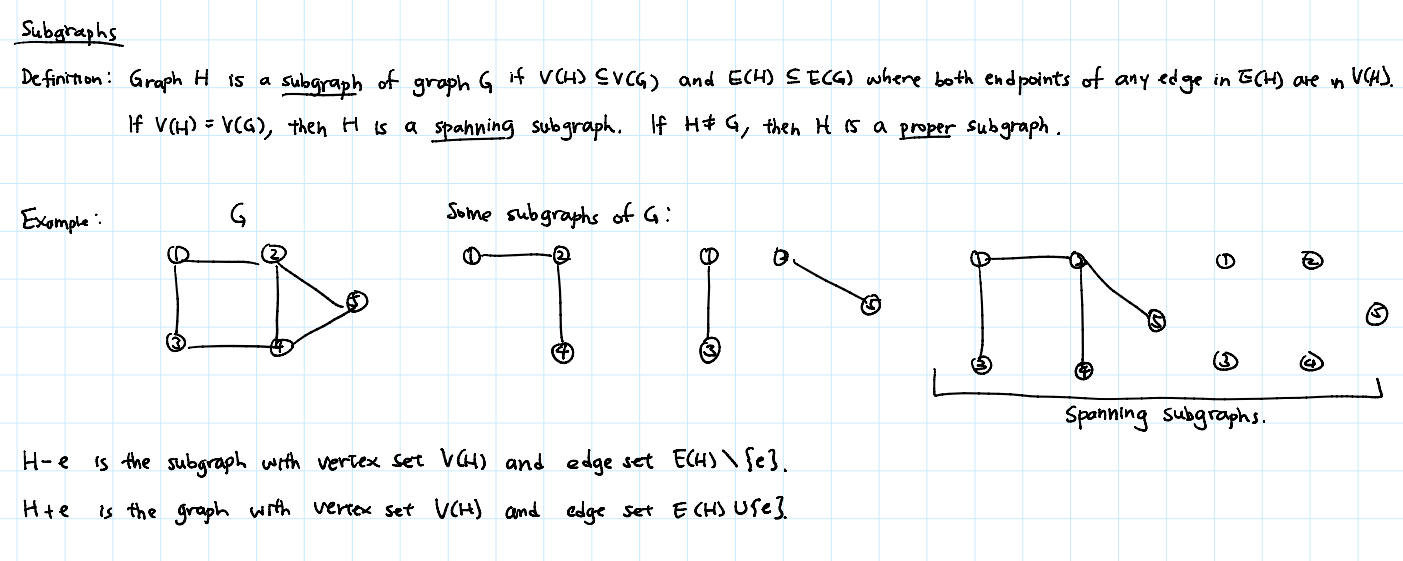 Subgraphs
Definition: Graph H is a subgraph of graph G if V(H) ⊆ V(G) and E(H) ⊆ E(G) where both endpoints of any edge in E(H) are in V(H).
If V(H) = V(G), then H is a spanning subgraph. If H ≠ G, then H is a proper subgraph.
Example: G Some subgraphs of G:
1 2 1 2 1 2 1 2 1 2
5 5 5 5
3 4 4 3 3 4 3 4
Spanning subgraphs.
H-e is the subgraph with vertex set V(H) and edge set E(H) \ {e}.
H+e is the graph with vertex set V(H) and edge set E(H) ∪ {e}.